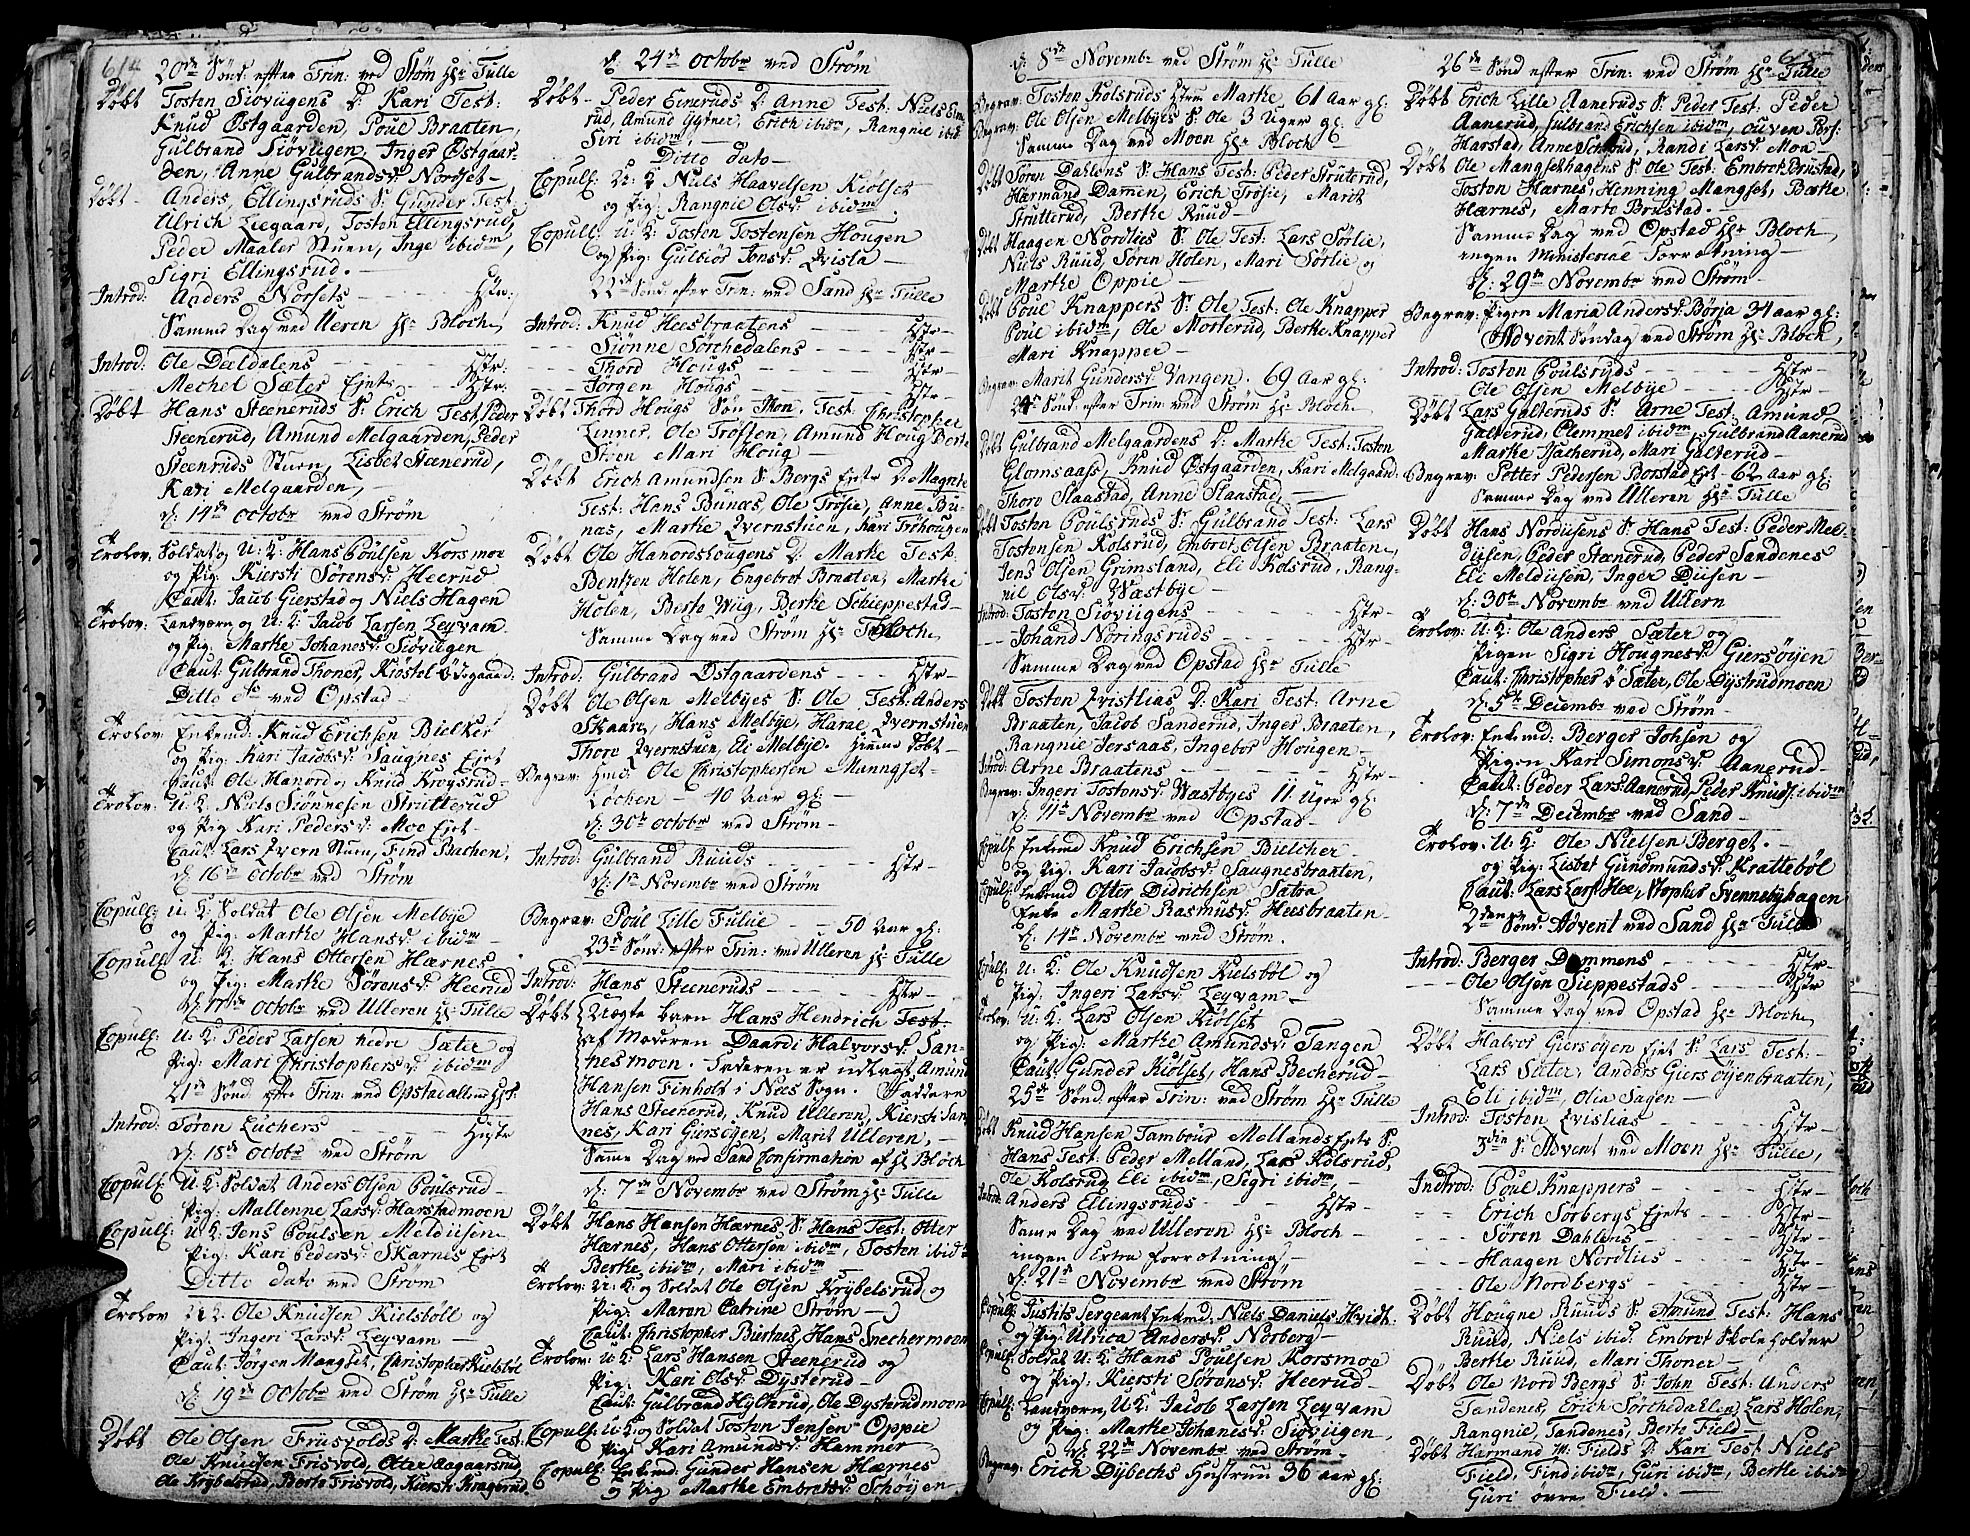 614
20de Sönd: efter Trin: ved Strøm Hr: Tulle
Døbt Tosten Siøviigens D: Kari Test:
Knud Østgaarden, Poul Braaten,
Gulbrand Siøviigen, Inger Østgaar-
den, Anne Gulbrandsd: Nordset-
Døbt - Anders Ellingsruds S: Gunder Test:
Ulrich Liegaard, Tosten Ellingsrud,
Peder Maaler Stuen, Inge ibidm,
Sigri Ellingsrud. -
Introd: Anders Norsets - Hstr:
Samme Dag ved Ulleren Hr: Bloch,
Introd: Ole Dældalens - Hstr:
Mechel Sæter Ejets - Hstr:
Døbt Hans Steeneruds S: Erich Test: Peder
Steenerud, Amund Melgaarden, Peder
Steenruds Stuen, Lisbet Steenerud,
Kari Melgaarden, -
d: 14de Octobr ved Strøm
Trolov: Soldat og U: K: Hans Poulsen Korsmoe
og Pig: Kiersti Sørensd: Heerud
Caut: Jacob Gierstad og Niels Hagen
Trolov: Landværn og U: K: Jacob Larsen Leyvam
og Pig: Marthe Johansd: Siøviigen
Caut: Gulbrand Thoner, Kirstel Ödegaard:
Ditto dto ved Opstad -
Trolov: Enkemd: Knud Erichsen Bielker
og Pig: Kari Jacobsd: Saugnes Ejet
Caut: Ole Hanord og Knud Krogsrud -
Trolov: U: K: Niels Siønnesen Strutterud
og Pig Kari Pedersd: Moe Ejet -
Caut: Lars Qvern Stuen, Find Bachen,
d: 16de Octobr ved Strøm
Copull: U: K: Soldat Ole Olsen Melbye
og Pig: Marthe Hansd: ibidm -
Copull U: K: Hans Ottersen Hærnes
og Pig: Marthe Sørensd: Heerud
d: 17de Octobr ved Ulleren Hr: Tulle
Copull: U: K: Peder Larsen nedre Sæter og
Pig: Mari Christophersd: ibidm
21de Sönd: efter Trin: ved Opstad
Introd: Søren Luchers - Hustr
d: 18de Octobr ved Strøm
Copull: U: K: Soldat Anders Olsen Poulsrud -
Pig: Mallenne Larsd: Harstadmoen
Copull: U: K: Jens Poulsen Meldiisen -
Pig: Kari Pedersd: Skarnes Ejet
Ditto dato ved Strøm
Trolov U: K: Ole Knudsen Kielsböll og
Pig: Ingeri Larsd: Leyvam -
Caut: Jörgen Mangset, Christopher Kielsböl
d: 19de Octobr ved Strøm Hr: Tulle
Døbt Ole Olsen Friisvolds D: Marthe Test:
Ole Knudsen Frisvold, Otter Aagaarsrud,
Ole Krybelsrud, Berte Frisvold, Kiersti Kragerud.
d: 24de Octobr ved Strøm
Døbt - Peder Eineruds D: Anne Test: Niels Eine-
rud, Amund Ygtner, Erich ibidm, Rangnie ibid
Siri ibidm, -
Ditto dato -
Copull: U: K Niels Haavelsen Kiölset
og Pig: Rangnie Olsd: ibidm
Copull: U: K: Tosten Tostensen Hougen
og Pig: Gulbiør Jonsd: Qvista -
22de Sönd: efter Trin: ved Sand Hr: Tulle
Introd: Knud Heesbraatens - Hstr -
Siønne Sörchedalens - Hstr -
Thord Hougs - Hstr -
Jörgen Hougs - Hstr -
Døbt Thord Hougs Søn Thon. Test: Christopher
Linner, Ole Trosten, Amund Houg Berte
Stren Mari Houg -
Døbt Erich Amundsen S: Bergs Ejete D: Magnete
Test: Hans Bunæs, Ole Trosie, Anne Bu-
nas, Marthe Qvernstuen, Kari Trøhougen
Døbt Ole Hanordshougens D: Marthe Test:
Bentzen Holen, Engebret Braaten, Marthe
Holen, Berte Wiig, Berthe Schieppestad -
Samme Dag ved Strøm Hr: Bloch,
Introd: Gulbrand Østgaardens - Hstr -
Døbt Ole Olsen Melbÿes S: Ole Test: Anders
Skaare, Hans Melbÿe, Harae Qvernstuen
Thore Qvernstuen, Eli Melbÿe. Hiemme døbt -
Begrav: Hmd: Ole Christophersen Manngset-
Løchen - 40 Aar gl: -
d: 30te Octobr ved Strøm -
Introd: Gulbrand Ruuds - Hstr -
d: 1te Novembr ved Strøm
Begrav: Poul Lille Fulue - 50 Aar gl:
23de Sönd: efter Trin: ved Ulleren Hr: Tulle
Introd: Hans Steeneruds - Hstr -
Døbt Uægte barn Hans Hendrich Test.
af Moderen Daardi Halvorsd: San-
nesmoen - Faderen er udlagt Amund
Hansen Finholt i Nees Sogn. Faddere
Hans Steenerud, Knud Ulleren, Kiersti San-
nes, Kari Giersøyen, Marit Ulleren, -
Samme Dag ved Sand Confirmation af Hr Bloch
d: 7de Novembr ved Strøm Hr: Tulle
Døbt Hans Hansen Hærnes S: Hans Test: Otter
Hærnes, Hans Ottersen ibidm, Tosten ibidm
Berthe ibidm, Mari ibidm -
Trolov: U: K: og Soldat Ole Olsen Krÿbelsrud og
Pig: Maran Catrine Strøm -
Caut: Christopher Burnæs, Hans Snechermoen
Trolov: U: K: Lars Hansen Steenerud og
Pig: Kari Olsd: Dysterud -
Caut: Gulbrand Hylterud, Ole Dysterudmoen
Copull: U: K: og Soldat Tosten Jensen Oppie
Pig: Kari Amundsd: Hammer
Copull: Enkemd. Gunder Hansen Hærnes
og Pig Marthe Embretsd: Schöyen -
d: 8de Novembr ved Strøm Hr: Tulle
Begrav: Tosten Kolsruds Hstru Marthe 61 Aar gl:
Begrav: Ole Olsen Melbÿes S: Ole 3 Uger gl:
Samme Dag ved Moen Hr: Bloch -
Døbt Søren Dahlens S: Hans Test: Peder Struterud,
Hærmand Damen, Erich Trosie, Marit
Strutterud, Berthe Knud -
Døbt Haagen Nordlies S: Ole Test: Lars Sørlie,
Niels Ruud, Søren Holen, Mari Sørlie og
Marthe Oppie -
Døbt Poul Knappers S: Ole Test: Ole Knapper
Poul ibidm, Ole Morterud, Berthe Knapper
Mari Knapper -
Begrav: Marit Gundersd: Vangen. 69 Aar gl:
24de Sönd: efter Trin: ved Strøm Hr: Bloch.
Døbt Gulbrand Melgaardens D: Marthe Test: Tosten
Glomsaass, Knud Østgaarden, Kari Melgaard:
Thoro Slaastad, Anne Slaastad, -
Døbt Tosten Poulsruds S: Gulbrand Test: Lars
Tostensen Kolsrud, Embret Olsen Braaten,
Jens Olsen Grimsland, Eli Kolsrud, Rang-
nil Olsd: Wæstbye -
Introd: Tosten Siøviigens - Hstr -
Johand Noringsruds - Hstr -
Samme Dag ved Opstad Hr: Tulle
Døbt Tosten Qvistlias D: Kari Test: Arne
Braaten, Jacob Sanderud, Inger Braaten,
Rangnie Jorsaas, Ingebor Hougen -
Introd: Arne Braatens - Hstr -
Begrav: Ingeri Tostensd: Wæstbyes 11 Uger gl:
d: 11te Novembr ved Opstad -
Copull: Enkemd Knud Erichsen Bielcher
og Pig: Kari Jacobsd: Saugnesbraaten,
Copull: Enkemd Otter Didrichsen Sætra
Enke Marthe Rasmusd: Heesbraaten -
d: 14de Novembr ved Strøm.
Copull: U: K: Ole Knudsen Kielsböl og
Pig: Ingeri Larsd: Leyvam -
Trolov: U: K: Lars Olsen Kiölset
og Pig: Marthe Amundsd: Tangen
Caut: Gunder Kiölset, Hans Becherud -
25de Sönd: efter Trin: ved Strøm Hr: Tulle
Døbt Knud Hansen Tambour Mellands Ejets S:
Hans Test: Peder Melland, Lars Kolsrud,
Ole Kolsrud Eli ibidm, Sigri ibidm, -
Introd: Anders Ellingsruds - Hstr -
Samme Dag ved Ulleren Hr: Bloch -
ingen Extra forretning -
d: 21de Novembr ved Strøm
Copull: Justits Sergeant Enkemd: Niels Daniels: Hvidt.
og Pig: Ulrica Andersd: Norberg -
Copull: Soldat U: K: Hans Poulsen Korsmoe
og Pig: Kiersti Sørensd: Heerud -
Copull: Landværn, U: K: Jacob Larsen Leyvam
og Pig: Marthe Johansd: Siøviigen,
d: 22de Novembr ved Strøm -
Begrav: Erich Dÿbechs Hustruu 36 aar gl:
615
26de Sönd efter Trin: ved Strøm Hr: Tulle
Døbt Erich Lille Aaneruds S: Peder Test: Peder
Aanerud, Gulbrand Erichsen ibidm, Ouven Pers:
Harstad, Anne Scherud, Randi Larsd: Moe -
Døbt Ole Mangsethagens S: Ole Test: Embret Brustad,
Tosten Hærnes, Henning Mangset, Bæthe
Hærnes, Marte Brustad. -
Samme Dag ved Opstad Hr: Bloch,
ingen Ministerial Forretning -
d: 29de Novembr ved Strøm -
Begrav: Pigen Maria Andersd: Børja 34 aar gl:
Advent Søndag ved Strøm Hr: Bloch,
Introd: Tosten Poulsruds - Hstr -
Ole Olsen Melbÿe - Hstr -
Døbt Lars Galteruds S: Arne Test: Amund
Galterud, Clemmet ibidm, Gulbrand Aanerud
Marthe Hacherud, Mari Galterud -
Begrav: Petter Pedersen Borstad Ejet - 62 Aar gl:
Samme Dag ved Ulleren Hr: Tulle
Døbt Hans Nordiisens S: Hans Test: Peder Mel-
diisen, Peder Steenerud, Peder Sandenes
Eli Meldiisen, Inger Diisen -
d: 30te Novembr ved Ullern
Trolov: U: K: Ole Anders Sæter og
Pigen Sigri Hougnesd: Giersøyen
Caut: Christopher S Sæter, Ole Dÿstrudmoen
d: 5te Decembr ved Strøm -
Trolov: Enkemd: Berger Johsen og
Pigen Kari Simonsd: Aanerud -
Caut: Peder Lars: Aanerud, Peder Knuds: ibidm
d: 7de Decembr ved Sand -
Trolov: U: K: Ole Nielsen Berget.
og Pig: Lisbet Gundmundsd: Krattebøl
Caut: Lars Lars: Hee, Stopher Svennebyhagen
2den Sönd: Advent ved Sand Hr: Tulle
Introd: Berger Dammens - Hstr -
Ole Olsen Sieppestads - Hstr
Samme Dag ved Opstad Hr: Bloch,
Døbt Halvor Giersøyen Ejet S: Lars Test: -
Lars Sæter, Anders Giersøyenbraaten,
Eli ibidm, Olia Sagen -
Introd: Tosten Qvislias - Hstr -
3die S: Advent ved Moen Hr: Tulle,
Indtrod: Poul Knappers - Hstr -
Erich Sorbergs Ejets - Hstr -
Søren Dahlens - Hstr -
Haagen Nordlies - Hstr -
Ole Nordbergs - Hstr -
Døbt Hougne Ruuds S: Amund Test: Hans
Ruud, Niels ibid: Embret Skoleholder
Berthe Ruud, Mari Thoner -
Døbt Ole Nord Bergs S: John Test: Anders
Sandenes, Erich Sørchedahlen, Lars Holen,
Rangnie, Sandenes, Berte Field -
Døbt Harmand M: Fields D: Kari Test Niels
Field, Find ibidm, Guri ibidm, Berthe ibidm
Guri øvre Field. -